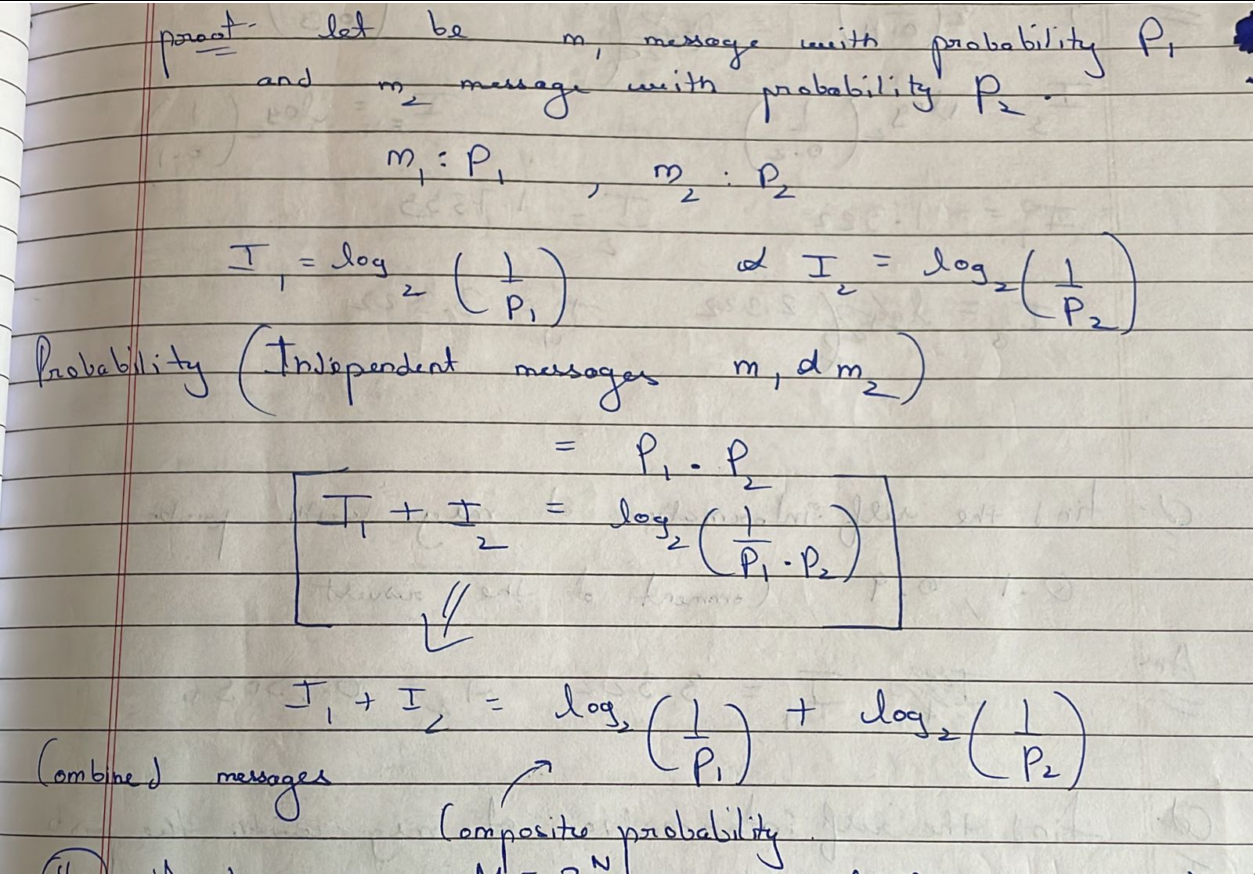 proof- let be m₁ message with probability P₁
and m₂ message with probability P₂.
m₁ : P₁ , m₂ : P₂
I₁ = log₂ (1/P₁) & I₂ = log₂ (1/P₂)
Probability (Independent messages m₁ & m₂)
= P₁ . P₂
I₁ + I₂ = log₂ (1/P₁ . P₂)
I₁ + I₂ = log₂ (1/P₁) + log₂ (1/P₂)
Combined messages
Composite probability.